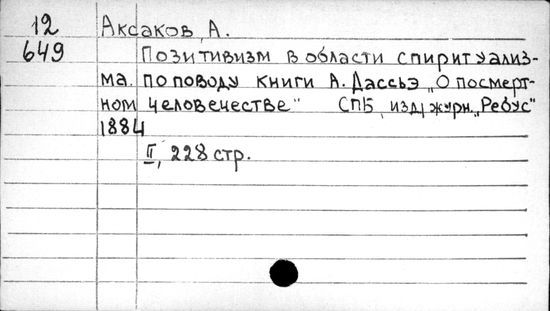 12 Аксаков, А.
649 Позитивизм в области спиритуализ-
ма. По поводу книги А. Дассьэ „О посмерт-
ном человечестве" СПБ, изд. журн. „Ребус"
1884
II, 228 стр.